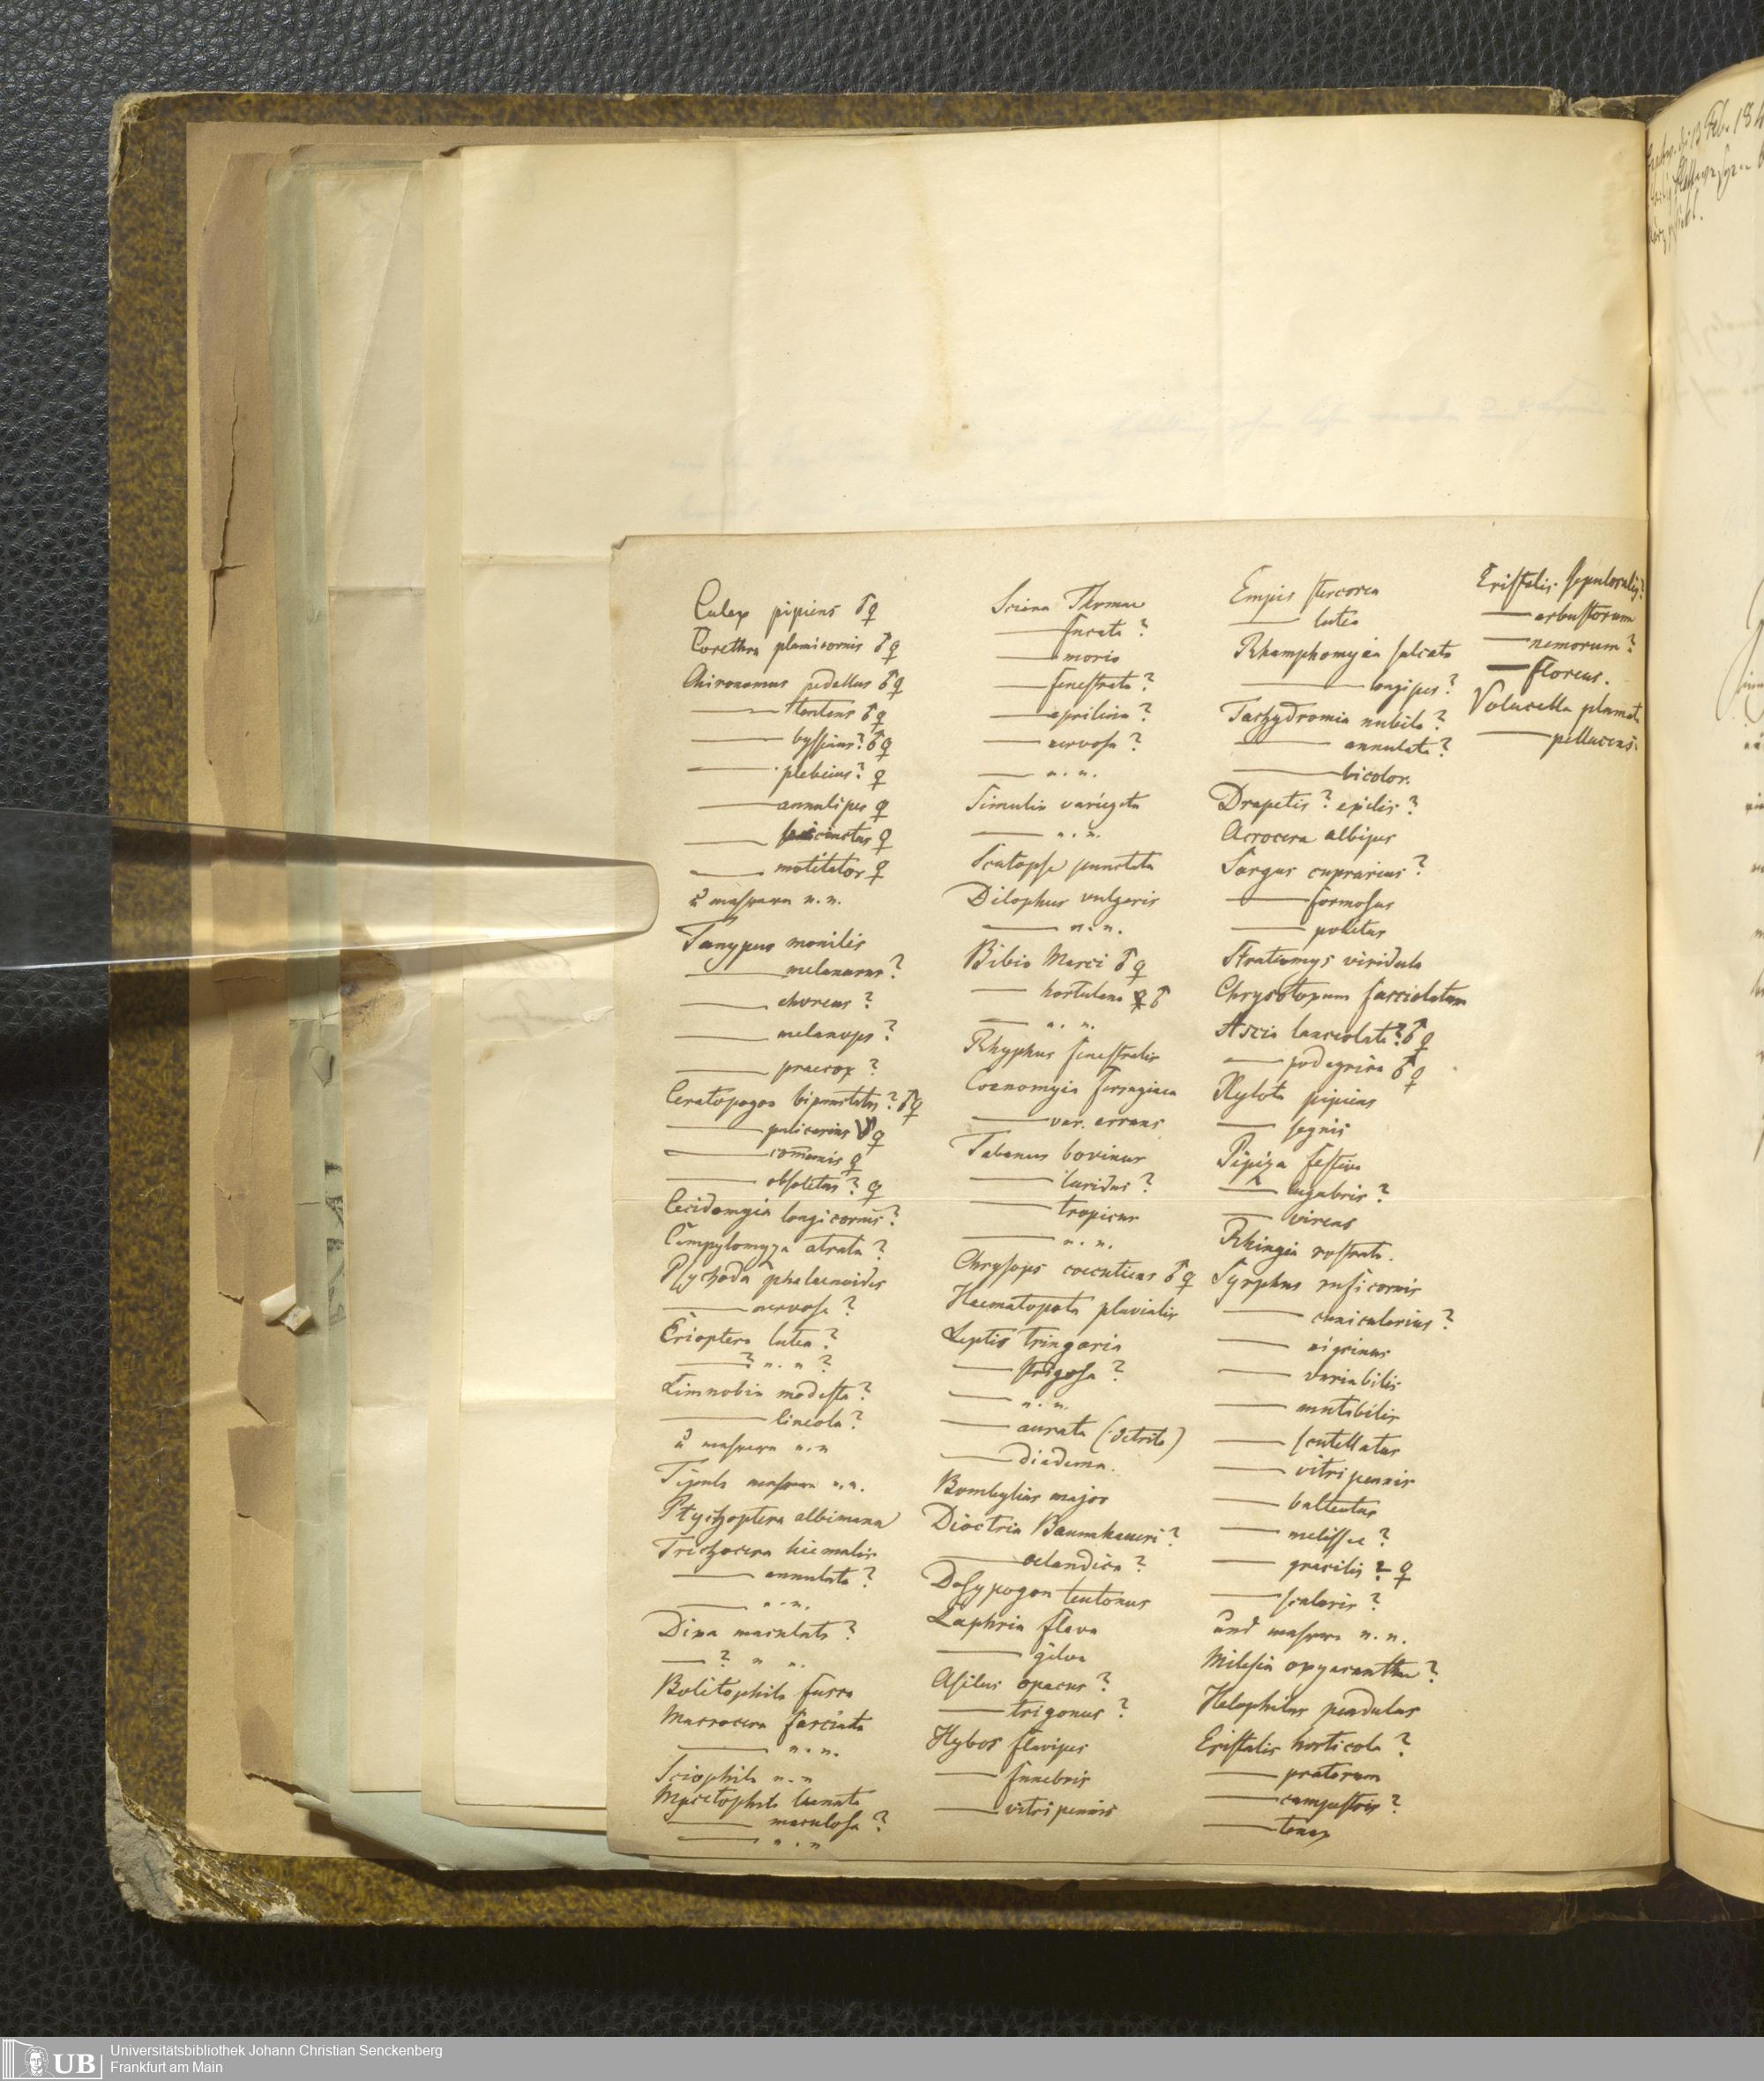 Culex pipiens ♂♀
Corethra plumicornis ♂♀
Chironomus pedellus ♂♀
—— tentans ♂♀
—— byssinus? ♂♀
—— plebeius? ♀
—— annulipes ♀
—— ♀
—— motitator ♀
n. n.
Tanypus monilis
—— melanurus?
—— choreus?
—— melanops?
—— praecox?
Ceratopogon bipunctatus? ♂♀
—— pulicarius ♀
—— com̄unis ♀
—— obsoletus? ♀
Cecidomyia longicornis?
Campylomyza atrata?
Psychoda phalaenoides
—— nervosa?
Erioptera lutea?
——? n. n?
Limnobia modesta?
—— lineola?
n. n
Tipula n. n.
Ptychoptera albimana
Trichocera hiemalis
—— annulata?
—— n. n.
Dixa maculata?
—— ? n n.
Bolitophila fusca
Macrocera fasciata
—— n. n.
Sciophila n. n
Mycetophila lunata
—— maculosa?
—— n. n
Sciara Thomae
—— fucata?
—— morio
—— fenestrata?
—— aprilina?
—— nervosa?
—— n. n.
Simulia variegata
—— n. n.
Scatopse punctata
Dilophus vulgaris
—— n. n.
Bibio Marci ♂♀
—— hortulana ♀♂
—— n. n.
Rhyphus fenestralis
Coenomyia ferruginea
—— var. errans
Tabanus bovinus
—— luridus?
—— tropicus
—— n. n.
Chrysops coecutiens ♂♀
Haematopota pluvialis
Leptis tringaria
—— strigosa?
—— n. n.
—— aurata (detrita)
—— diadema.
Bombylius major
Dioctria Baumhaueri?
—— oelandica?
Dasypogon teutonus
Laphria flava
—— gilva
Asilus opacus?
—— trigonus?
Hybos flavipes
—— funebris
—— vitripennis
Empis stercorea
—— lutea
Rhamphomyia sulcata
—— longipes?
Tachydromia nubila?
—— annulata?
—— bicolor.
Drapetis? exilis?
Acrocera albipes
Sargus cuprarius?
—— formosus
—— politus
Stratiomys viridula
Chrysotoxum fasciolatum
Ascia lanceolata? ♂♀
—— podagrica ♂♀
Xylota pipiens
—— segnis
Pipiza festiva
—— lugubris?
—— virens
Rhingia rostrata.
Syrphus ruficornis
—— cunicularius?
—— nigrinus
—— variabilis
—— mutabilis
—— scutellatus
—— vitripennis
—— balteatus
—— melissae?
—— gracilis? ♀
—— scalaris?
und n. n.
Milesia oxyacanthae?
Helophilus pendulus
Eristalis horticola?
—— pratorum
—— campestris?
—— tenax
Eristalis sepulcralis?
—— arbustorum
—— nemorum?
—— floreus.
Volucella plumata
—— pellucens.
13 Feb. 184
Universitätsbibliothek Johann Christian Senckenberg
Frankfurt am Main
UB